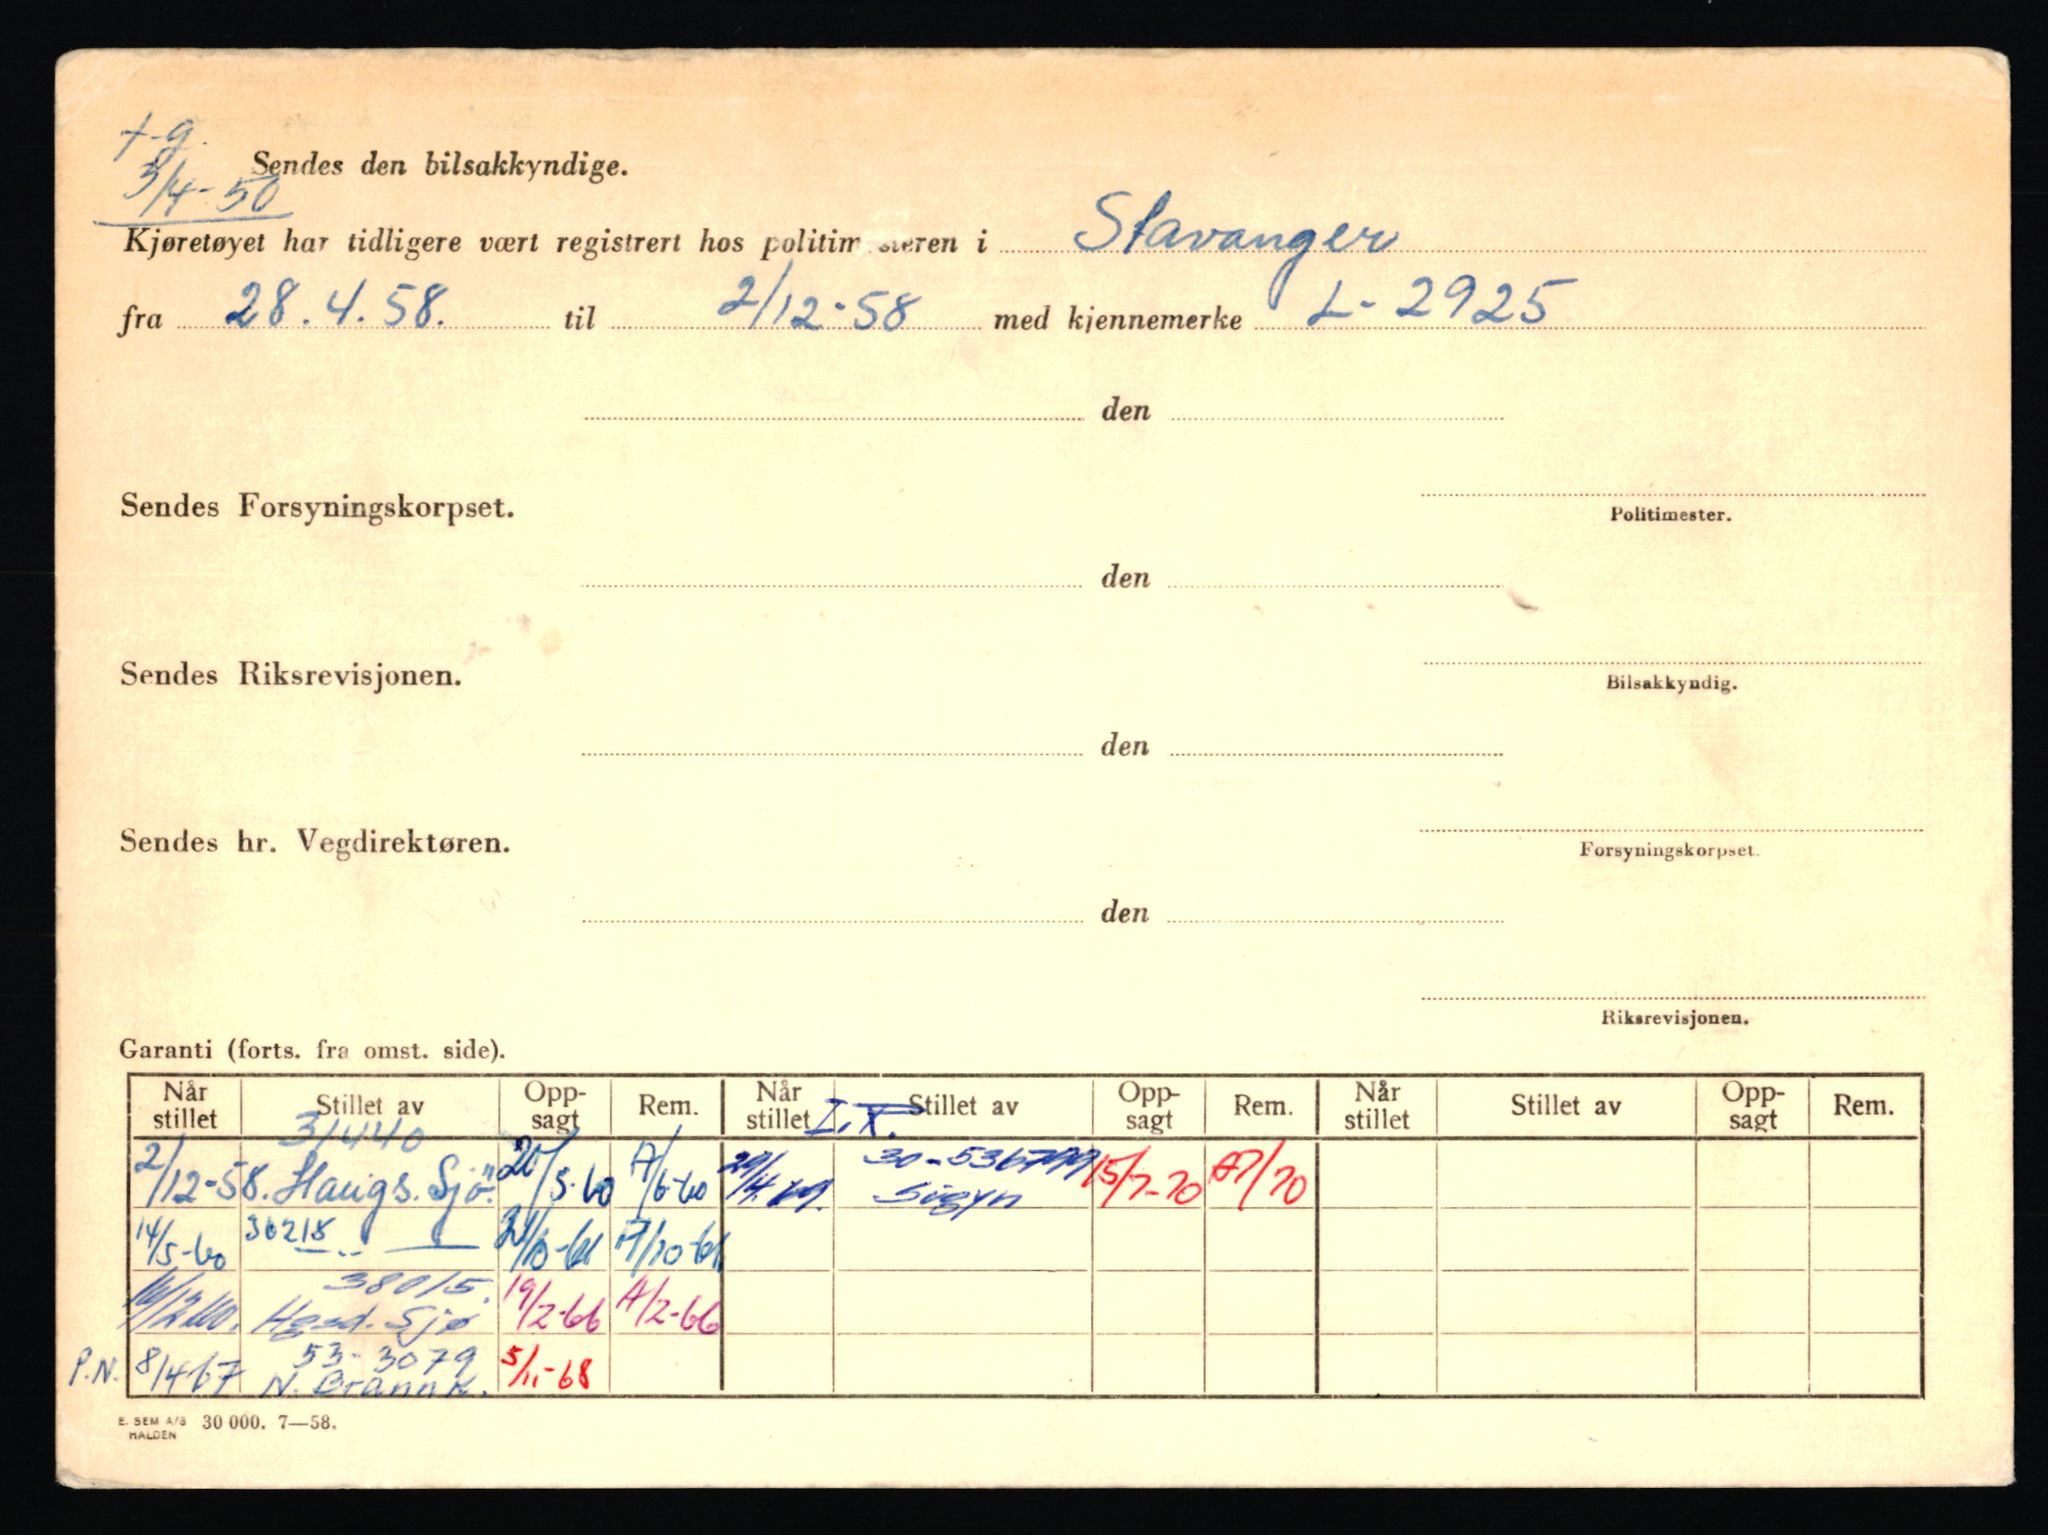 + g.
3/4-50
Sendes den bilsakkyndige.
Kjøretøyet har tidligere vært registrert hos politim steren i Stavanger
fra 28.4.58. til 2/12-58 med kjennemerke L-2925
den
Sendes Forsyningskorpset.
Politimester.
den
Sendes Riksrevisjonen.
Bilsakkyndig.
den
Sendes hr. Vegdirektøren.
Forsyningskorpset.
den
Riksrevisjonen.
Garanti (forts. fra omst. side).
Når stillet Stillet av Opp-sagt Rem. Når stillet Stillet av Opp-sagt Rem. Når stillet Stillet av Opp-sagt Rem.
31440 I.X.
2/12-58. Haugs. Sjø. 20/5-60 A/6-60 29/4.69. 30-536799 Sigyn 15/7-70 A7/70
14/5-60 36218 — " — 21/10-61 A/10-61
38015.
Hgsd. Sjø 19/2-66 A/2-66
P.N. 8/4 67 53-3079 N. Brannk. 5/11-68
E. SEM A/S HALDEN 30 000. 7—58.